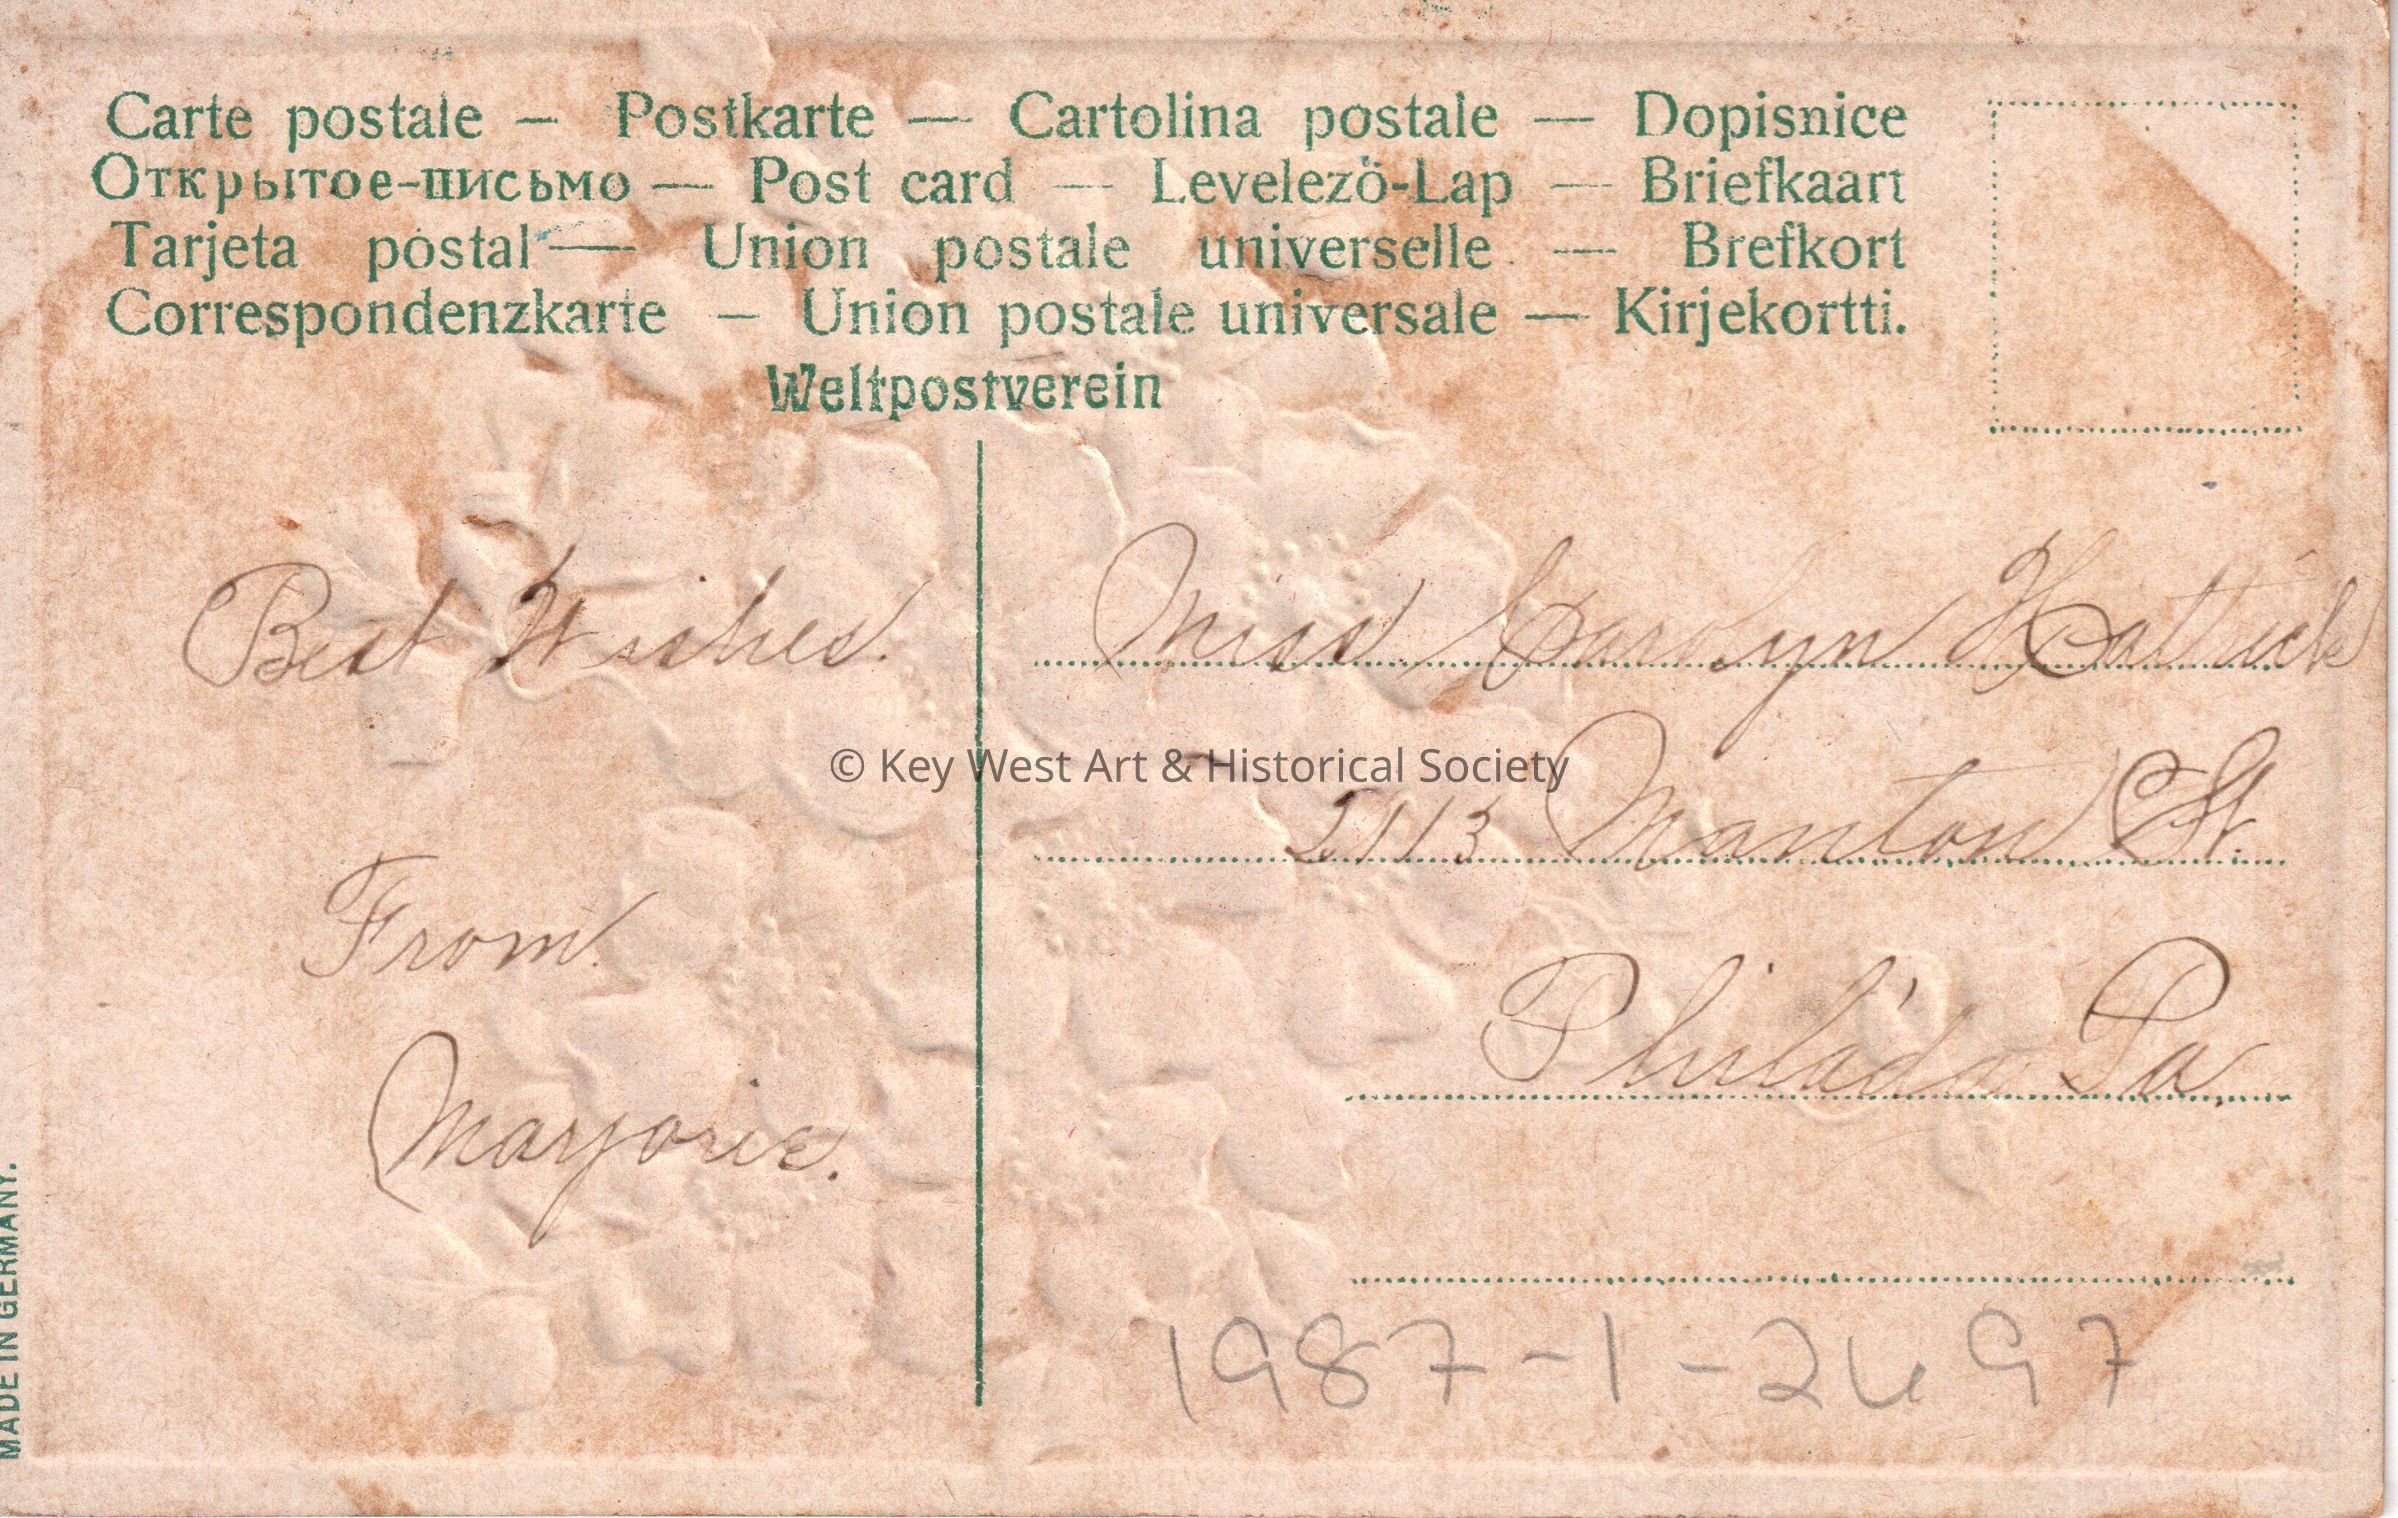 Carte postale – Postkarte — Cartolina postale — Dopisnice
Открытое-письмо — Post card — Levelezö-Lap — Briefkaart
Tarjeta postal — Union postale universelle — Brefkort
Correspondenzkarte — Union postale universale — Kirjekortti.
Weltpostverein
Best Wishes.
From
Marjorie.
Miss Carolyn Hattrick
2113 Manton St.
Philad'a Pa.
© Key West Art & Historical Society
MADE IN GERMANY.
1987-1-2697